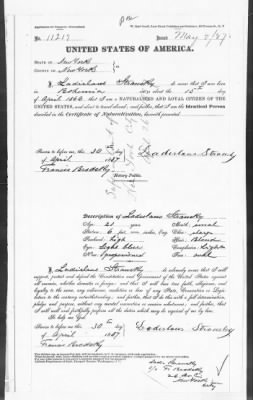 No. 11217 Issued May 2/87
UNITED STATES OF AMERICA.
STATE OF New York
COUNTY OF New York
I, Ladislaus Stransky do swear that I was born
in Bohemia on or about the 15th day
of April 1866, that I am a NATURALIZED AND LOYAL CITIZEN OF THE
UNITED STATES, and about to travel abroad, and further, that I am the Identical Person
described in the Certificate of Naturalization, herewith presented.
Sworn to before me, this 30th day
of April 1887
Ladislaus Stransky
Francis Brodsky
Notary Public.
Description of Ladislaus Stransky
Age: 21 year
Mouth: small
Stature: 6
Chin:
Forehead: high
Hair: Blonde
Eyes: Light blue
Complexion: Light
Nose:
Face: oval
I, Ladislaus Stransky do solemnly swear that I will
support, protect and defend the Constitution and Government of the United States against
all enemies, whether domestic or foreign; and that I will bear true faith, allegiance, and
loyalty to the same, any ordinance, resolution or law of any State, Convention or Legis-
lature to the contrary notwithstanding; and further, that I do this with a full determination,
pledge and purpose, without any mental reservation or evasion whatsoever; and further, that
I will well and faithfully perform all the duties which may be required of me by law.
So help me God.
Sworn to before me, this 30th day
of April 1887
Ladislaus Stransky
Francis Brodsky
New York
City